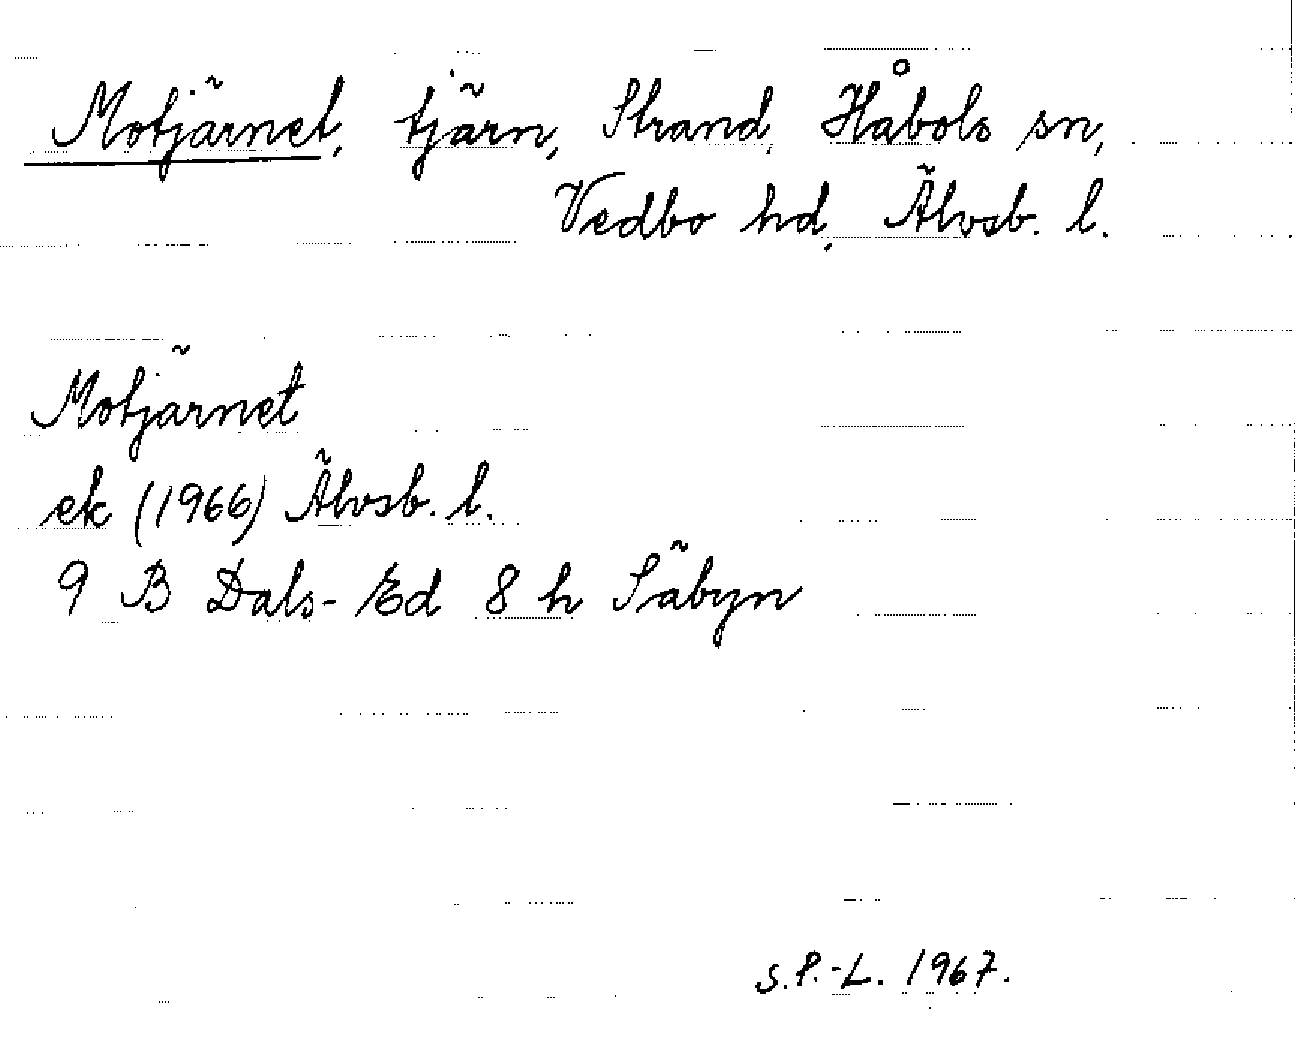 Motjärnet, tjärn, Strand, Håbols sn,
Vedbo hd, Älvsb. l.
Motjärnet
ek (1966) Älvsb. l.
9 B Dals-Ed 8 h Säbyn
S.P.-L. 1967.